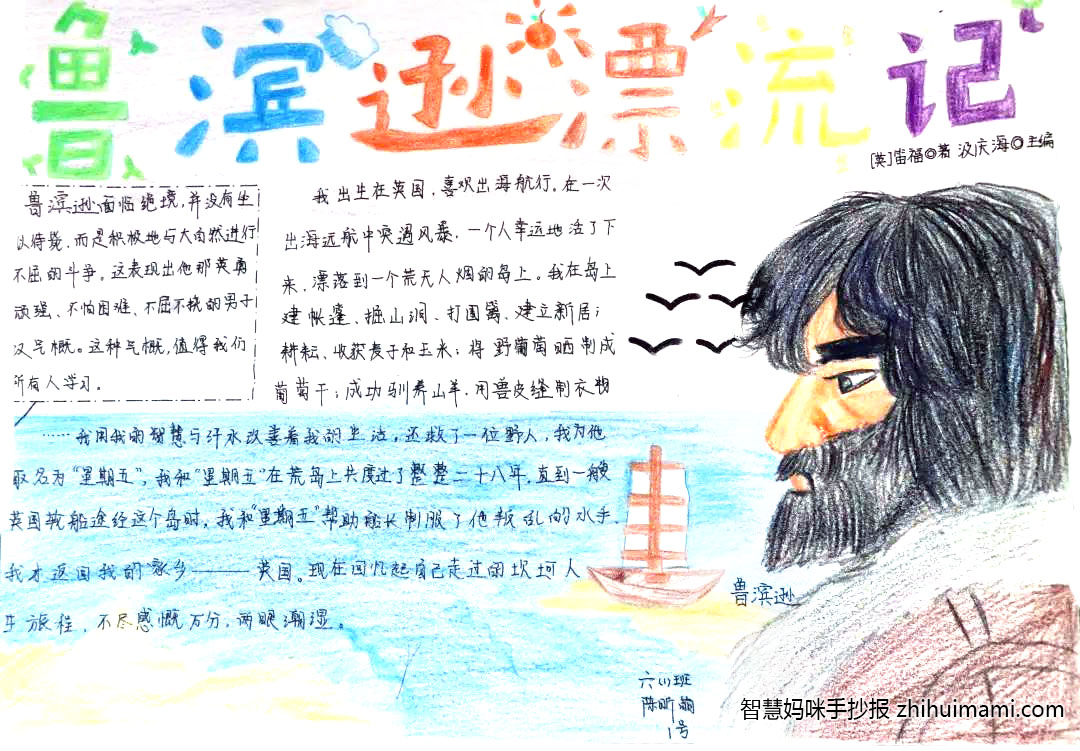 鲁滨逊漂流记
[英]笛福◎著 汲庆海◎主编
鲁滨逊面临绝境，并没有坐
以待毙，而是积极地与大自然进行
不屈的斗争。这表现出他那英勇
顽强、不怕困难、不屈不挠的男子
汉气慨。这种气慨，值得我们
所有人学习。
我出生在英国，喜欢出海航行。在一次
出海远航中突遇风暴，一个人幸运地活了下
来，漂落到一个荒无人烟的岛上。我在岛上
建帐篷、掘山洞、打围篱、建立新居；
耕耘、收获麦子和玉米；将野葡萄晒制成
葡萄干；成功驯养山羊，用兽皮缝制衣物
……我用我的智慧与汗水改善着我的生活，还救了一位野人，我为他
取名为“星期五”，我和“星期五”在荒岛上共度过了整整二十八年，直到一艘
英国轮船途经这个岛时，我和“星期五”帮助船长制服了他叛乱的水手，
我才返回我的家乡——英国。现在回忆起自己走过的坎坷人
生旅程，不尽感慨万分，两眼潮湿。
鲁滨逊
六(1)班
陈昕
1号
智慧妈咪手抄报 zhihuimami.com